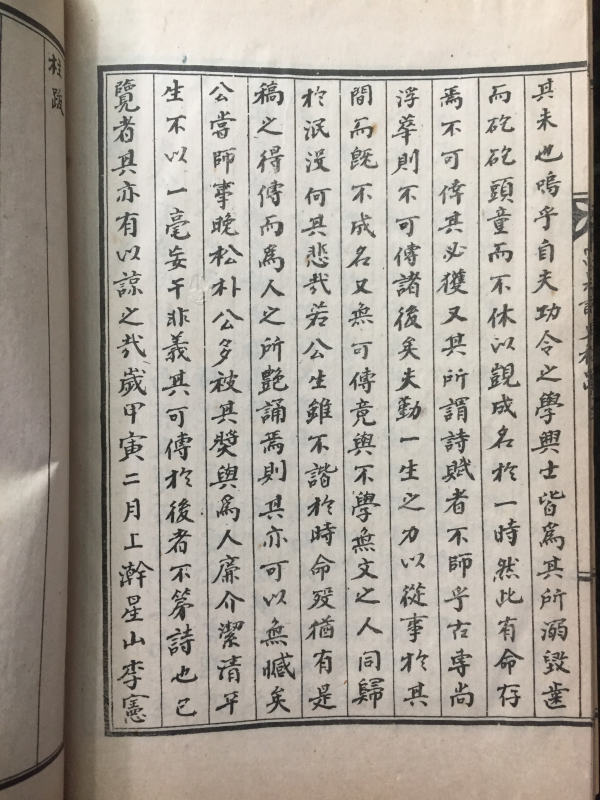 其未也嗚乎自夫功令之學興士皆爲其所溺毁齒
而矻矻頭童而不休以覬成名於一時然此有命存
焉不可倖其必獲又其所謂詩賦者不師乎古專尚
浮華則不可傳諸後矣夫勤一生之力以從事於其
間而旣不成名又無可傳竟與不學無文之人同歸
於泯沒何其悲㦲若公生雖不諧於時命殁猶有是
稿之得傳而爲人之所艶誦焉則其亦可以無憾矣
公嘗師事晚松朴公多被其奬與爲人廉介潔清平
生不以一毫妄干非義其可傳於後者不第詩也已
覽者其亦有以諒之㦲歲甲寅二月上澣星山李憲
跋